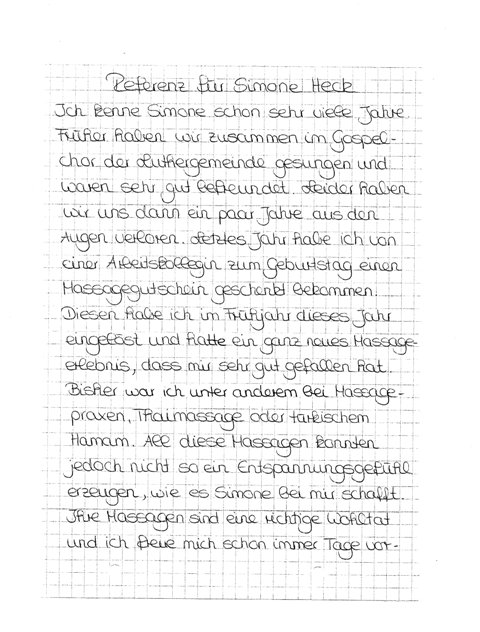 Referenz für Simone Heck
Ich kenne Simone schon sehr viele Jahre.
Früher haben wir zusammen im Gospel-
chor der Luthergemeinde gesungen und
waren sehr gut befreundet. Leider haben
wir uns dann ein paar Jahre aus den
Augen verloren. Letztes Jahr habe ich von
einer Arbeitskollegin zum Geburtstag einen
Massagegutschein geschenkt bekommen.
Diesen habe ich im Frühjahr dieses Jahr
eingelöst und hatte ein ganz neues Massage-
erlebnis, dass mir sehr gut gefallen hat.
Bisher war ich unter anderem bei Massage-
praxen, Thaimassage oder türkischem
Hamam. All diese Massagen konnten
jedoch nicht so ein Entspannungsgefühl
erzeugen, wie es Simone bei mir schafft.
Ihre Massagen sind eine richtige Wohltat
und ich freue mich schon immer Tage vor-